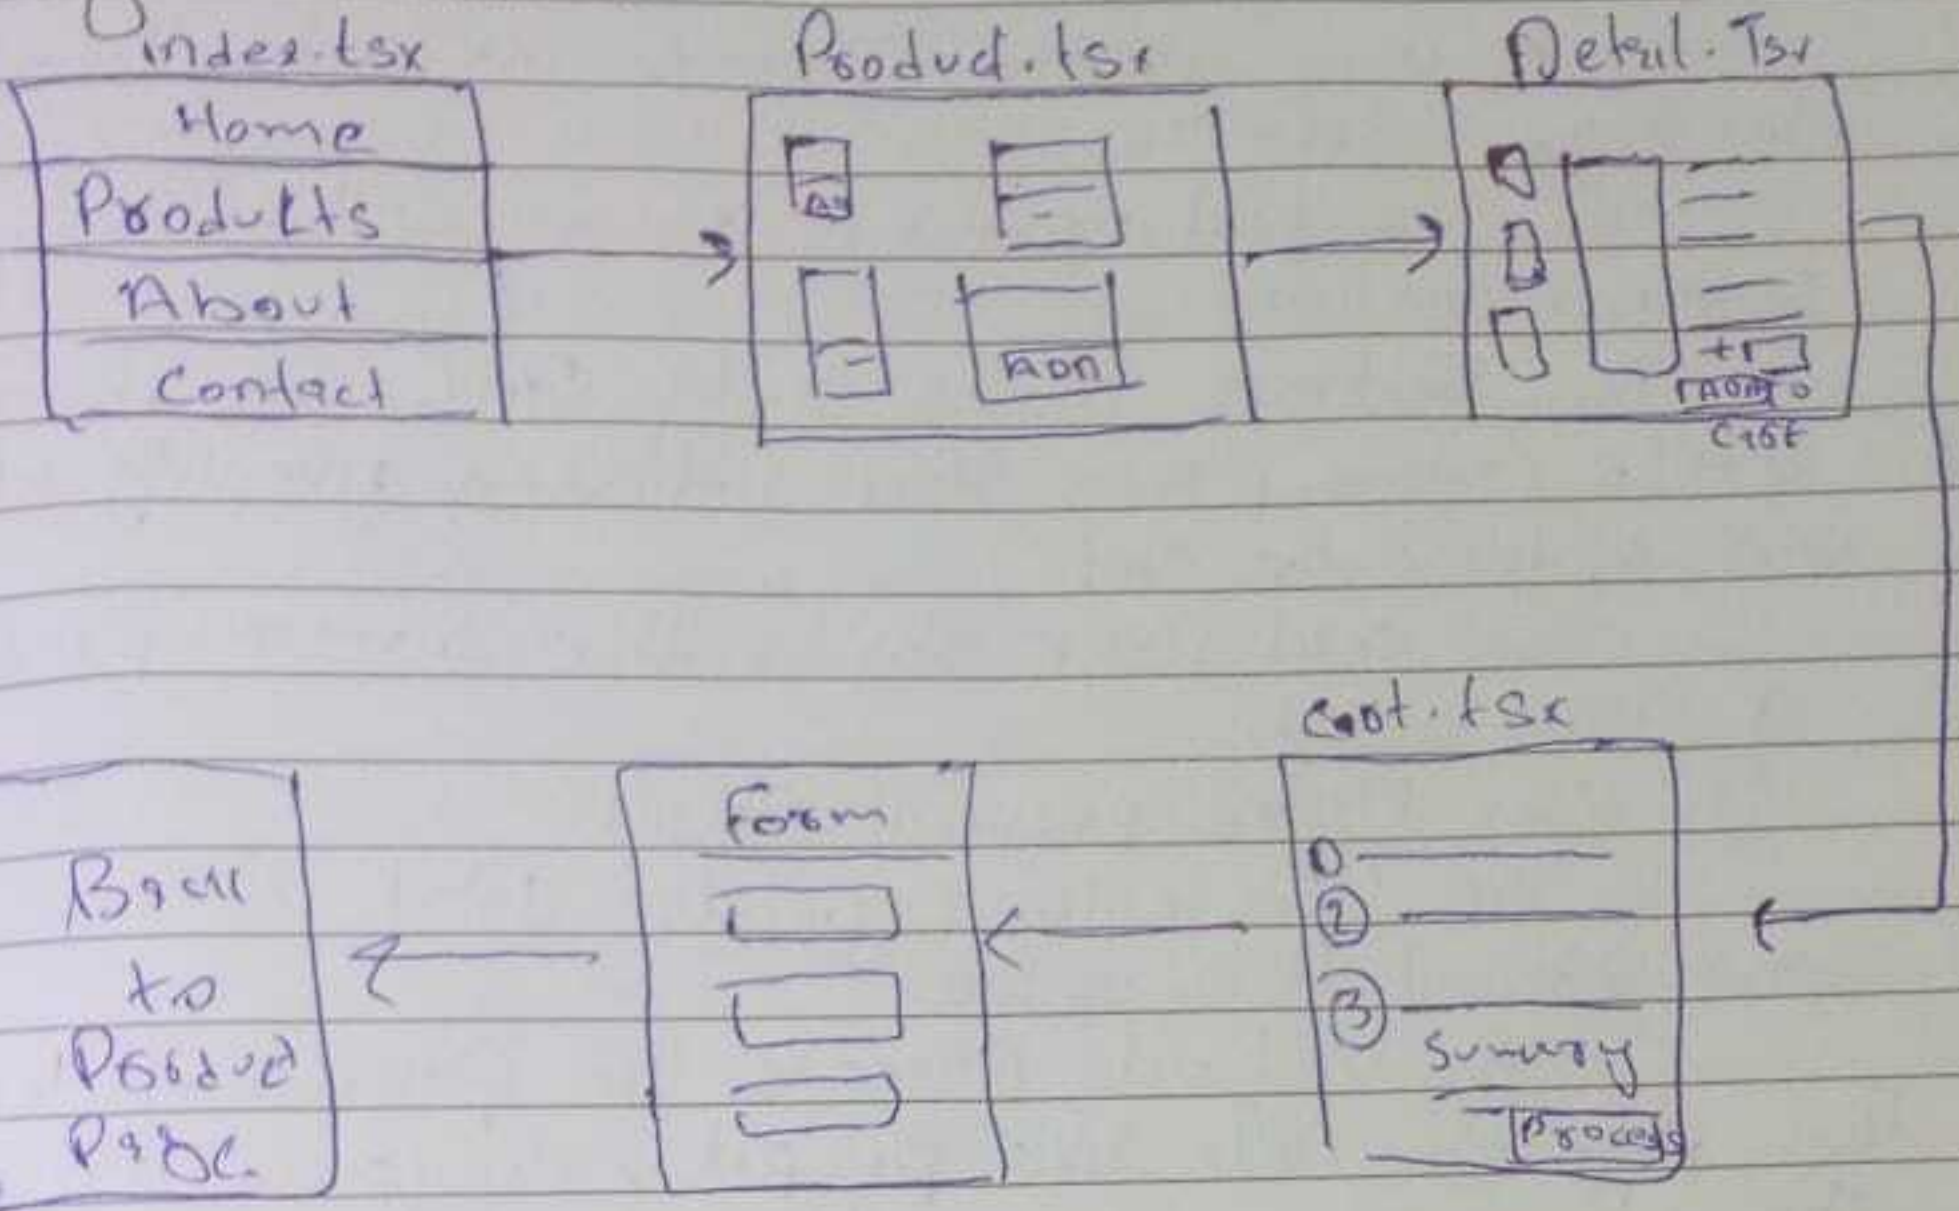 index.tsx
Home
Products
About
Contact
Product.tsx
ADD
Detail.Tsx
+
Cart
Cart.tsx
1
2
3
Summary
Process
Form
Back
to
Product
Page